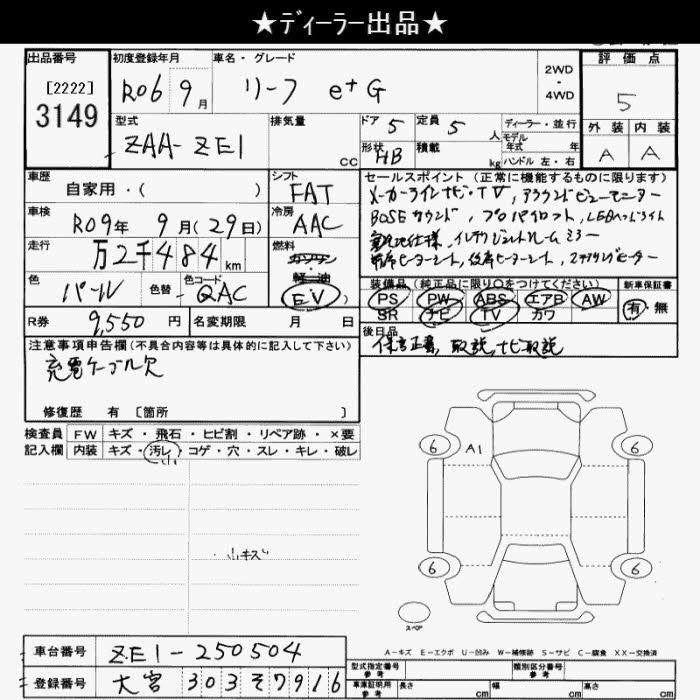 ★ディーラー出品★
出品番号
[2222]
3149
初度登録年月
R06 9月
車名・グレード
リーフ e+G
2WD
・
4WD
評価点
5
外装 内装
A A
型式
ZAA-ZE1
排気量
cc
ドア 5
定員 5人
形状 HB
積載 kg
ディーラー・並行
モデル
年式 年
ハンドル 左・右
車歴
自家用・( )
シフト
FAT
車検
R09年 9月(29日)
冷房
AAC
走行
万2千484km
燃料
ガソリン
軽油
(EV)
色
パール
色替
色コード
QAC
R券 9,550円
名変期限 月 日
セールスポイント(正常に機能するものに限ります)
メーカーラインナビ・TV, アラウンドビューモニター
BOSEサウンド, プロパイロット, LEDヘッドライト
寒冷地仕様, インテリジェントルームミラー
前席ヒーターシート, 後席ヒーターシート, ステアリングヒーター
装備品(純正品に限り○をつけてください)
PS PW ABS エアB AW
SR ナビ TV カワ
新車保証書
有・無
後日品
保証書, 取説, ナビ取説
注意事項申告欄(不具合内容等は具体的に記入して下さい)
充電ケーブル欠
修復歴 有 [箇所 ]
検査員 FW キズ・飛石・ヒビ割・リペア跡・×要
記入欄 内装 キズ・汚レ・コゲ・穴・スレ・キレ・破レ
小
小キズ
6 A1 6
6 6
スペア
A-キズ E-エクボ U-凹み W-補修跡 S-サビ C-腐食 XX-交換済
車台番号 ZE1-250504
登録番号 大宮 303 そ 7916
型式指定番号
参考
類別区分番号
参考
車庫証明用
参考
長さ cm 幅 cm 高さ cm